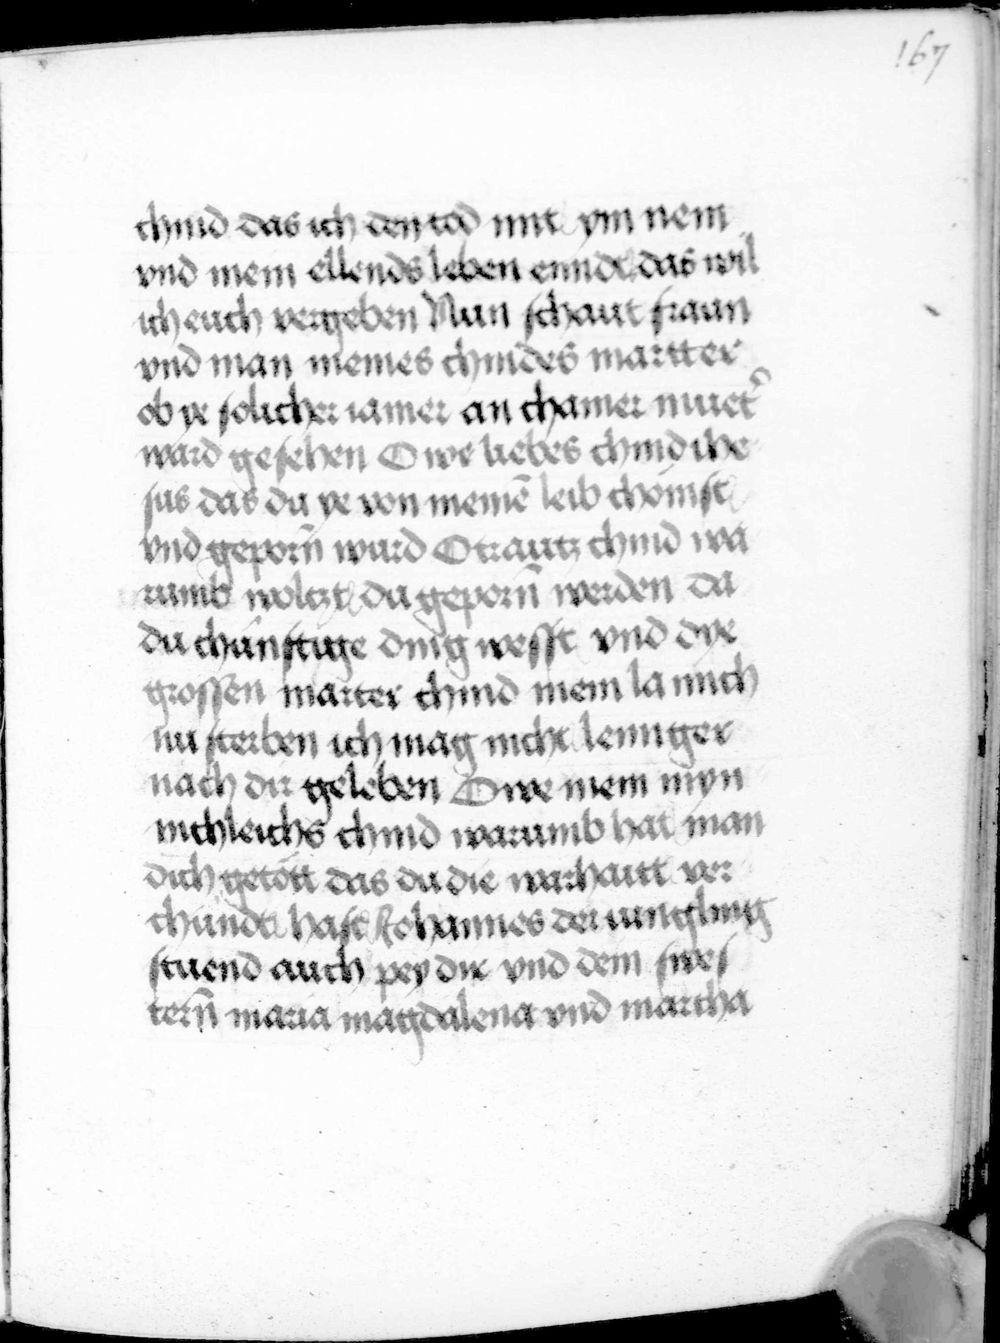 167
chind das ich den tod mit ym nem
vnd mein ellends leben ennde das wil
ich euch vergeben Nun schaut fraun
vnd man meines chindes martter
ob ye solicher iamer an chainer muet̾
ward gesehen Owe liebes chind ihe
sus das du ye von meinē leib chömst
vnd geporn̄ wurd O trautz chind wa
rumb woltzt du geporn̄ werden da
du chünftige ding wesst vnd dye
grossen marter chind mein la mich
nu sterben ich mag nicht lennger
nach dir geleben Owe mein myn
nichleichs chind warumb hat man
dich getött das du die warhaitt ver
chündt hast Johannes der iungling
stuend auch pey dir vnd dein swes
tern̄ maria magdalena vnd martha